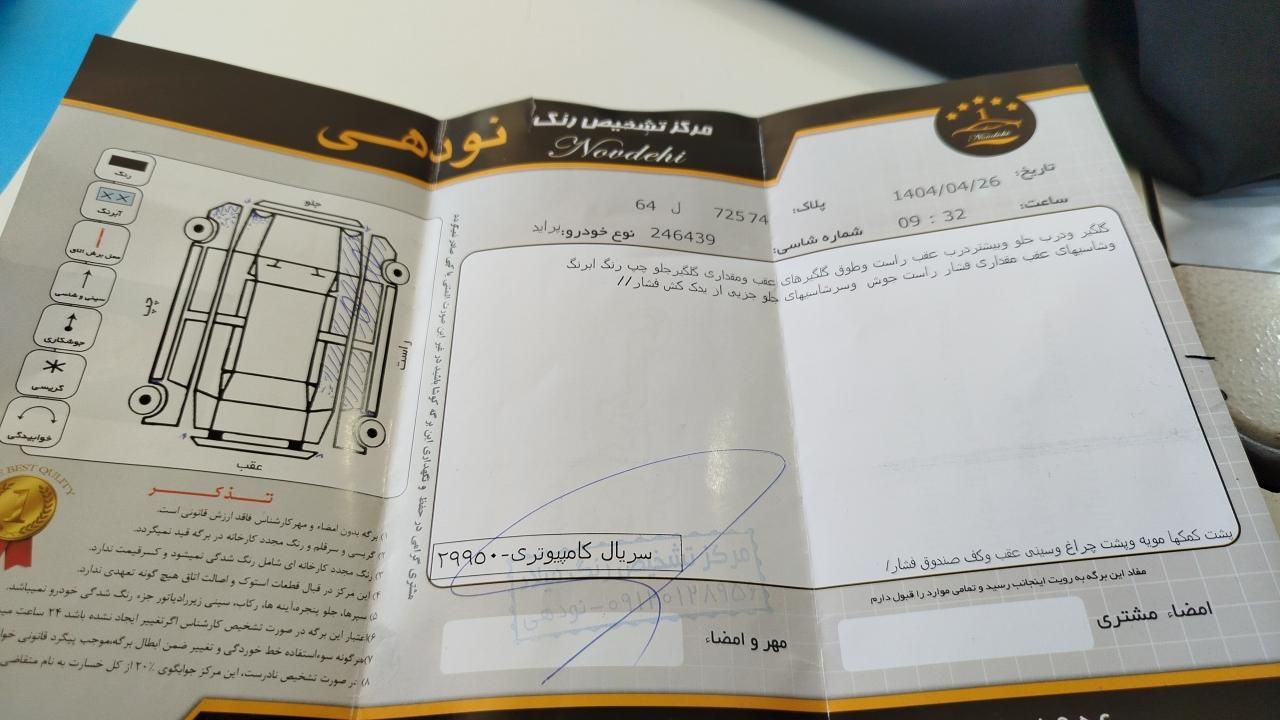 مرکز تشخیص رنگ
نودهی
Novdehi
1
Novdehi
تاریخ: 1404/04/26
ساعت: 09 : 32
پلاک: 72574 ل 64
شماره شاسی: 246439
نوع خودرو: پراید
گلگیر ودرب جلو وبیشتردرب عقب راست وطوق گلگیرهای عقب ومقداری گلگیرجلو چپ رنگ ابرنگ
وشاسیهای عقب مقداری فشار راست جوش وسرشاسیهای جلو جزیی از یدک کش فشار//
پشت کمکها مویه وپشت چراغ وسینی عقب وکف صندوق فشار/
سریال کامپیوتری-۲۹۹۵۰
مفاد این برگه به رویت اینجانب رسید و تمامی موارد را قبول دارم
امضاء مشتری
مهر و امضاء
رنگ
آبرنگ
محل برش اتاق
سینی و شاسی
جوشکاری
گریسی
خوابیدگی
جلو
چپ
راست
عقب
BEST QULITY
1
تذکر
۱) برگه بدون امضاء و مهرکارشناس فاقد ارزش قانونی است.
۲) گریسی و سرقلم و رنگ مجدد کارخانه در برگه قید نمیگردد.
۳) رنگ مجدد کارخانه ای شامل رنگ شدگی نمیشود و کسرقیمت ندارد.
۴) این مرکز در قبال قطعات استوک و اصالت اتاق هیچ گونه تعهدی ندارد.
۵) سپرها، جلو پنجره، آینه ها، رکاب، سینی زیررادیاتور جزء رنگ شدگی خودرو نمیباشد.
۶) اعتبار این برگه در صورت تشخیص کارشناس اگرتغییر ایجاد نشده باشد ۲۴ ساعت
۷) هرگونه سوءاستفاده خط خوردگی و تغییر ضمن ابطال برگه، موجب پیگرد قانونی
۸) در صورت تشخیص نادرست، این مرکز جوابگوی ۲۰٪ از کل خسارت به نام متقاضی